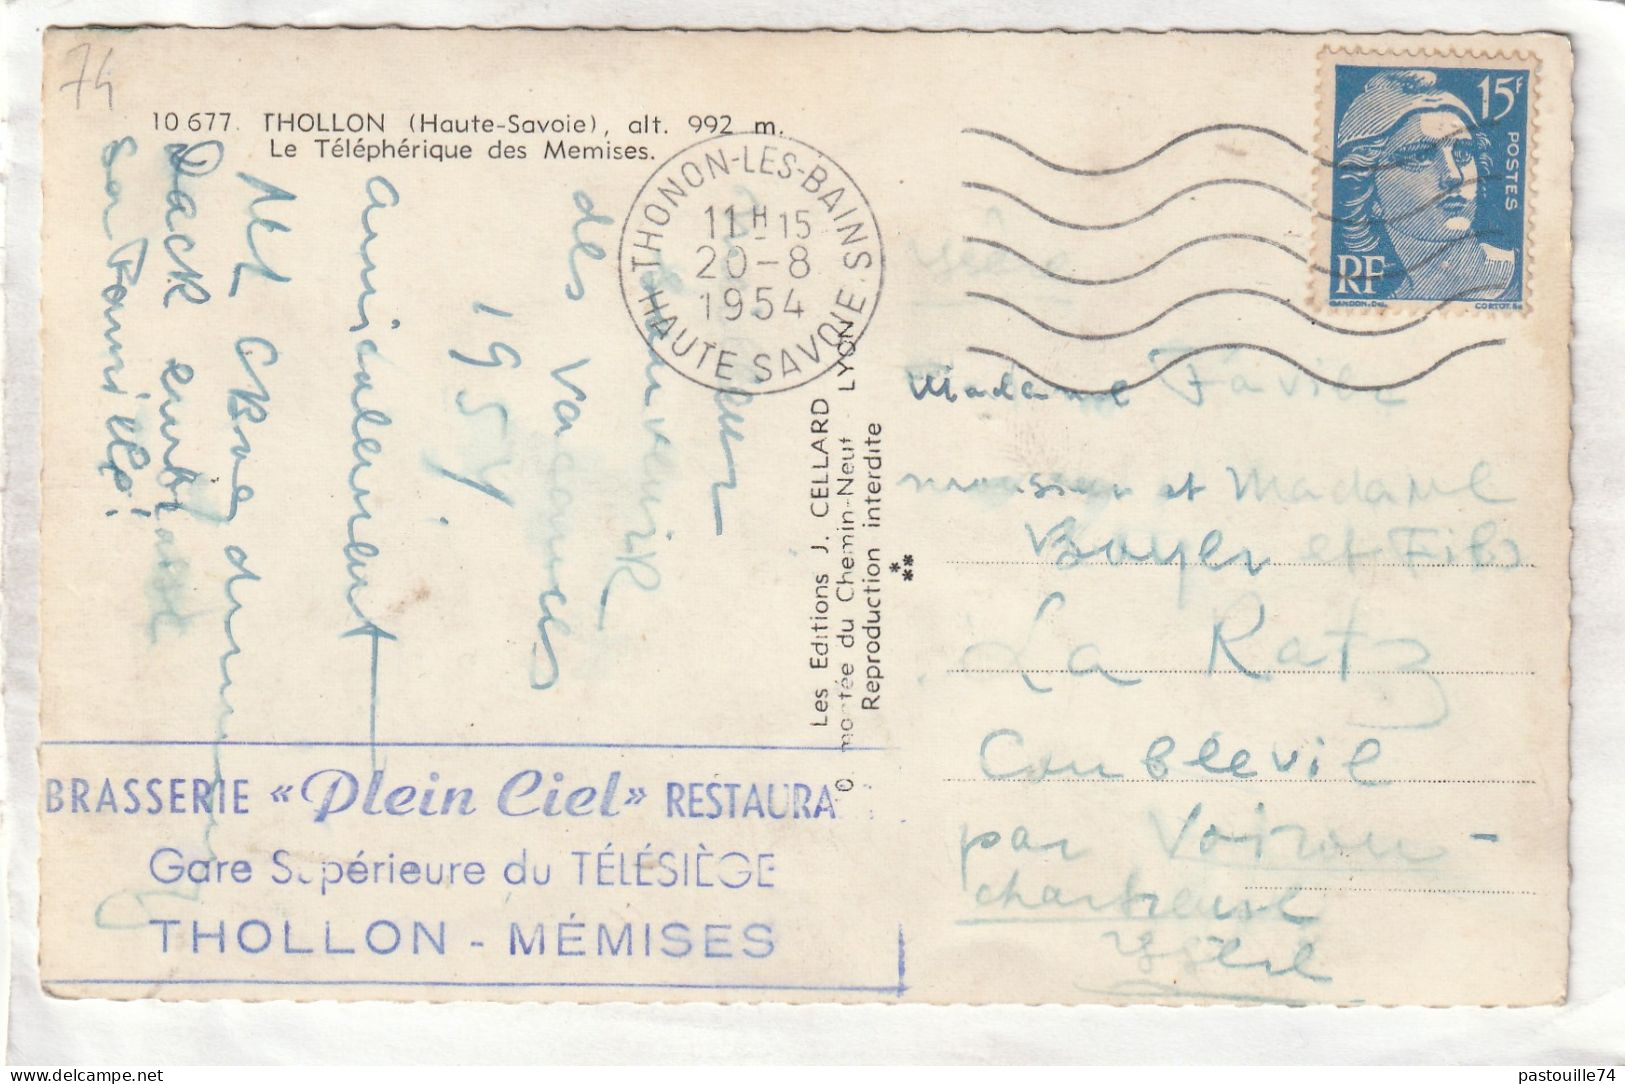 74
10 677. THOLLON (Haute-Savoie), alt. 992 m.
Le Téléphérique des Memises.
THONON-LES-BAINS
11H15
20-8
1954
HAUTE SAVOIE
15F
POSTES
RF
GANDON.Del.
CORTOT.Sc
souvenir
des vacances
1954
amicalement
Dack embrasse
sa Famille!
Les Editions J. CELLARD
montée du Chemin-Neuf LYON
Reproduction interdite
Madame Favier
monsieur et Madame
Boyer et Fils
La Ratz
Coublevie
par Voiron -
chartreuse
Isère
BRASSERIE «Plein Ciel» RESTAURA
Gare Supérieure du TÉLÉSIÈGE
THOLLON - MÉMISES
pastouille74